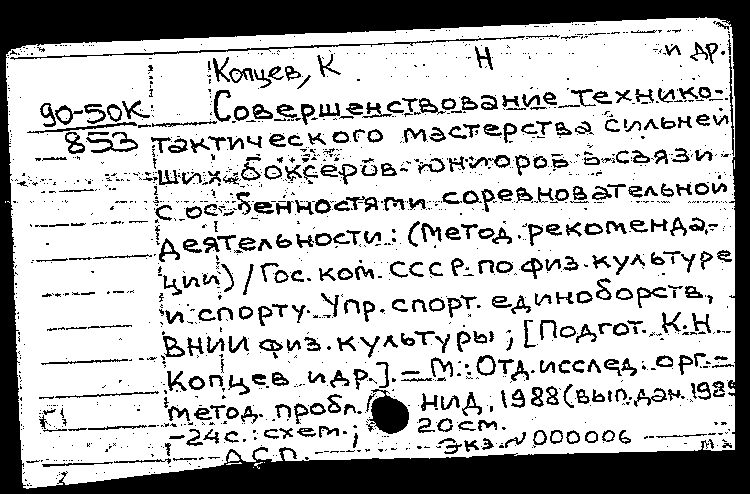 Копцев, К Н и др.
90-50К Совершенствование технико-
853 тактического мастерства сильней
ших боксеров-юниоров в связи
с особенностями соревновательной
деятельности: (Метод. рекоменда-
ции) / Гос. ком. СССР по физ. культуре
и спорту. Упр. спорт. единоборств,
ВНИИ физ. культуры; [Подгот. К.Н
Копцев и др.]. – М.: Отд. исслед. орг.-
метод. пробл. НИД, 1988 (вып. дан. 1989
-24 с.: схем.; 20 см.
Д.С.П. Экз. № 000006